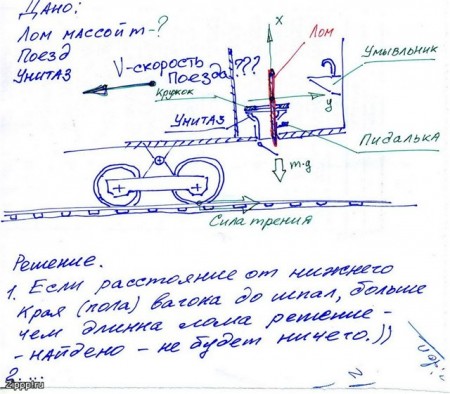 Дано:
Лом массой m-?
Поезд
Унитаз
V-скорость
Поезда
???
Лом
X
Y
Умывльник
Кружок
Унитаз
Пидалька
m·g
Сила трения
Решение.
1. Если расстояние от нижнего
края (пола) вагока до шпал, больше
чем длинна лома решение -
- найдено - не будет ничего.))
2. ...
Zippp!ru